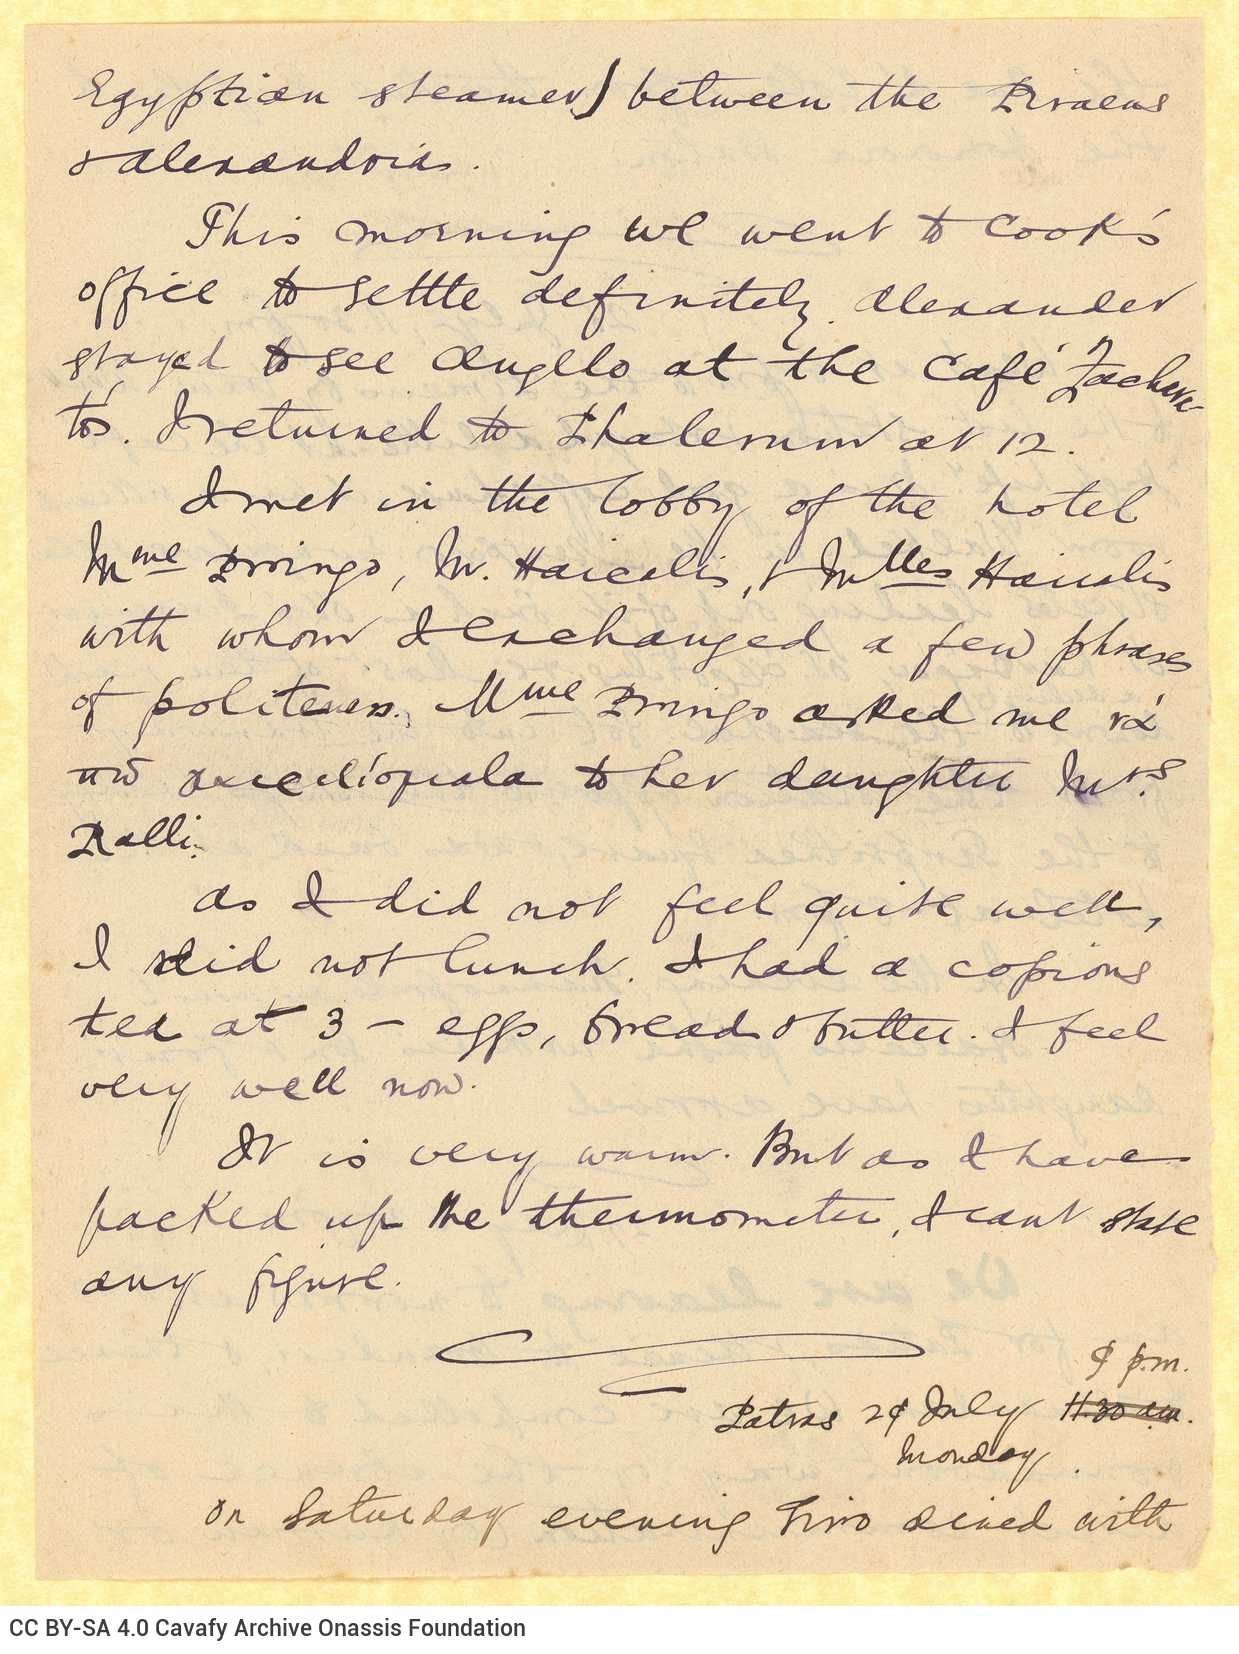 Egyptian steamer) between the Piraeus
& Alexandria.
This morning we went to Cook's
office to settle definitely. Alexander
stayed to see Angelo at the Café Zachara
tós. I returned to Phalerum at 12.
I met in the lobby of the hotel
Mme Pringo, Mr. Haicalis, & Mlles Haicalis
with whom I exchanged a few phrases
of politeness. Mme Pringo asked me νά
πῶ χαιρετίσματα to her daughter Mrs.
Ralli.
As I did not feel quite well,
I did not lunch. I had a copious
tea at 3 – eggs, bread & butter. I feel
very well now.
It is very warm. But as I have
packed up the thermometer, I cant state
any figure.
9 p.m.
Patras 29 July 11.30 a.m.
Monday.
On Saturday evening Tino dined with
CC BY-SA 4.0 Cavafy Archive Onassis Foundation